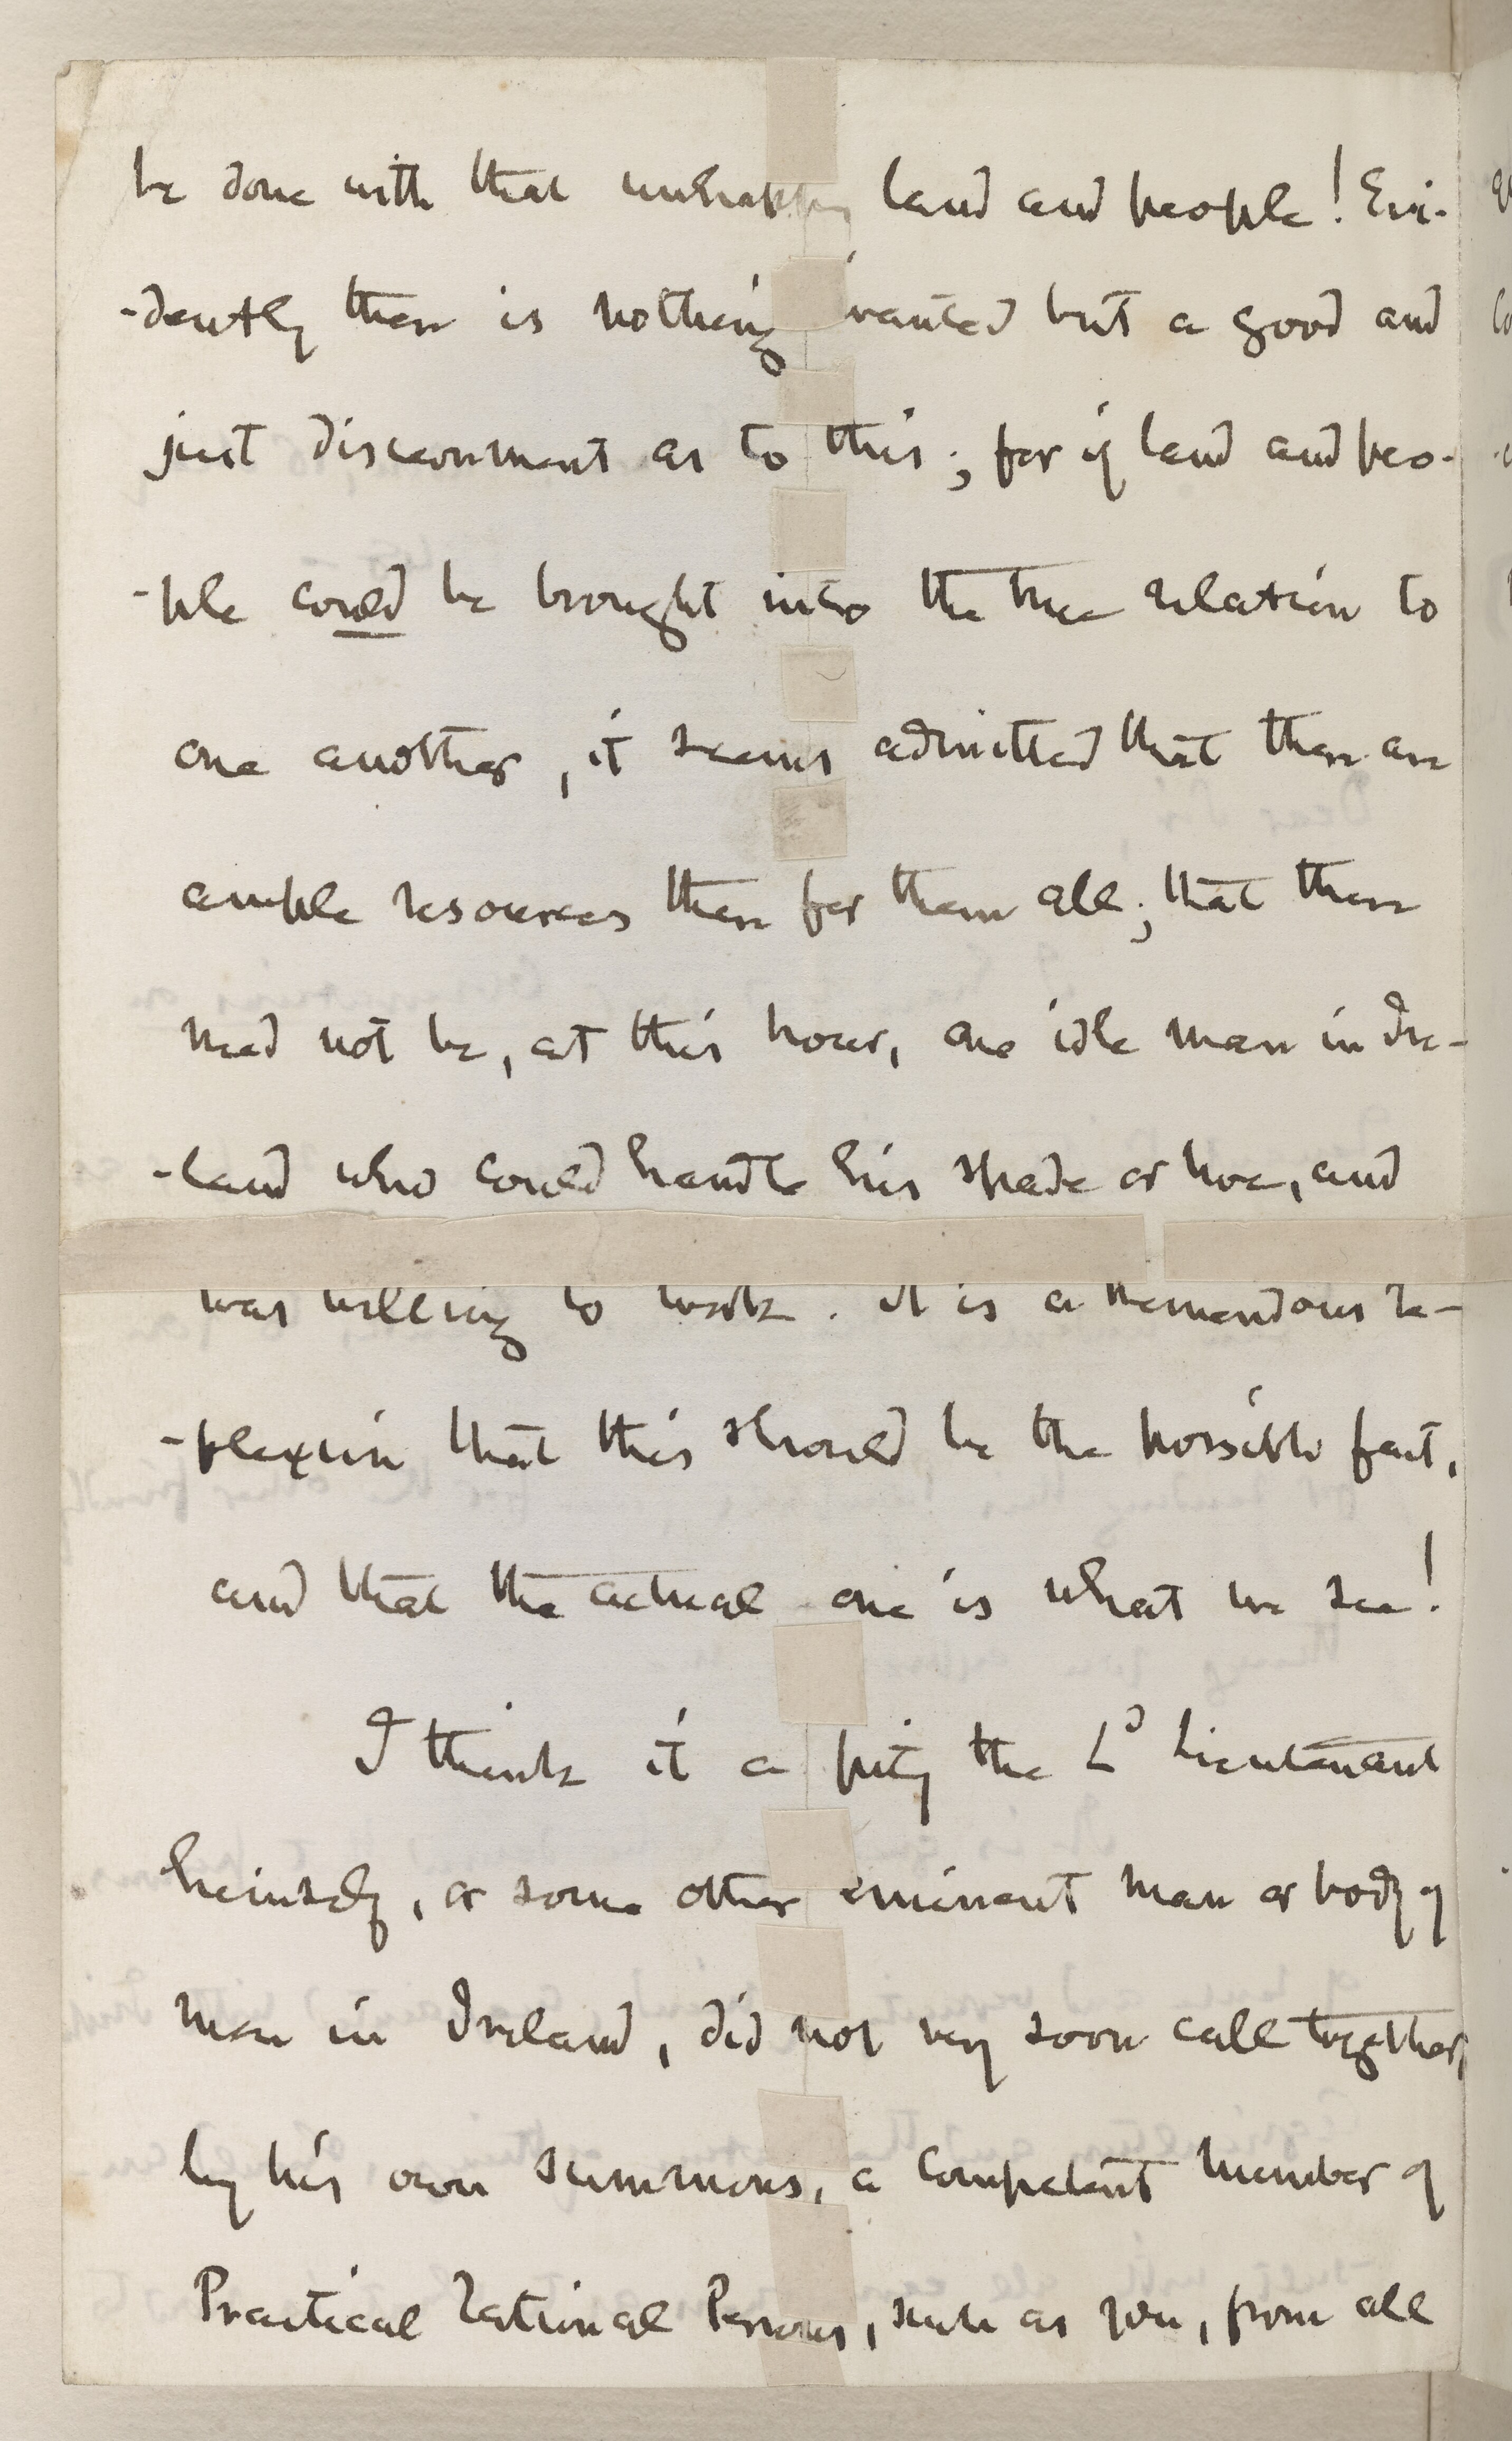 be done with that unhappy land and people! Evi-
-dently there is nothing wanted but a good and
just discernment as to this; for if land and peo-
-ple could be brought into the true relation to
one another, it seems admitted that there are
ample resources there for them all; that there
need not be, at this hour, one idle man in Ire-
-land who could handle his spade or hoe, and
was willing to work. It is a tremendous re-
-flexion that this should be the possible fact,
and that the actual one is what we see!
I think it a pity the Ld Lieutenant
himself, or some other eminent man or body of
men in Ireland, did not very soon call together,
by his own summons, a competent number of
Practical rational Persons, such as you, from all